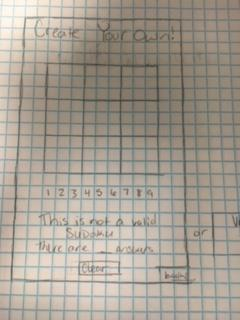 Create Your Own!
1 2 3 4 5 6 7 8 9
This is not a valid
Sudoku
or
there are _ answers
Clear